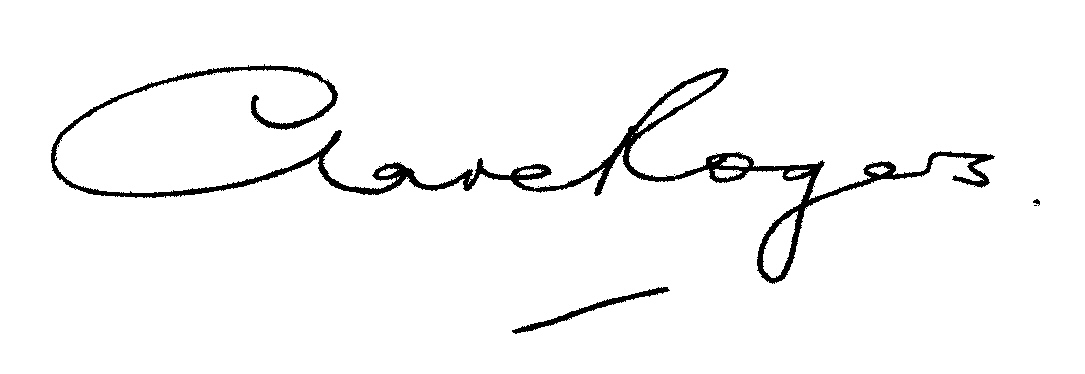 Clare Rogers.